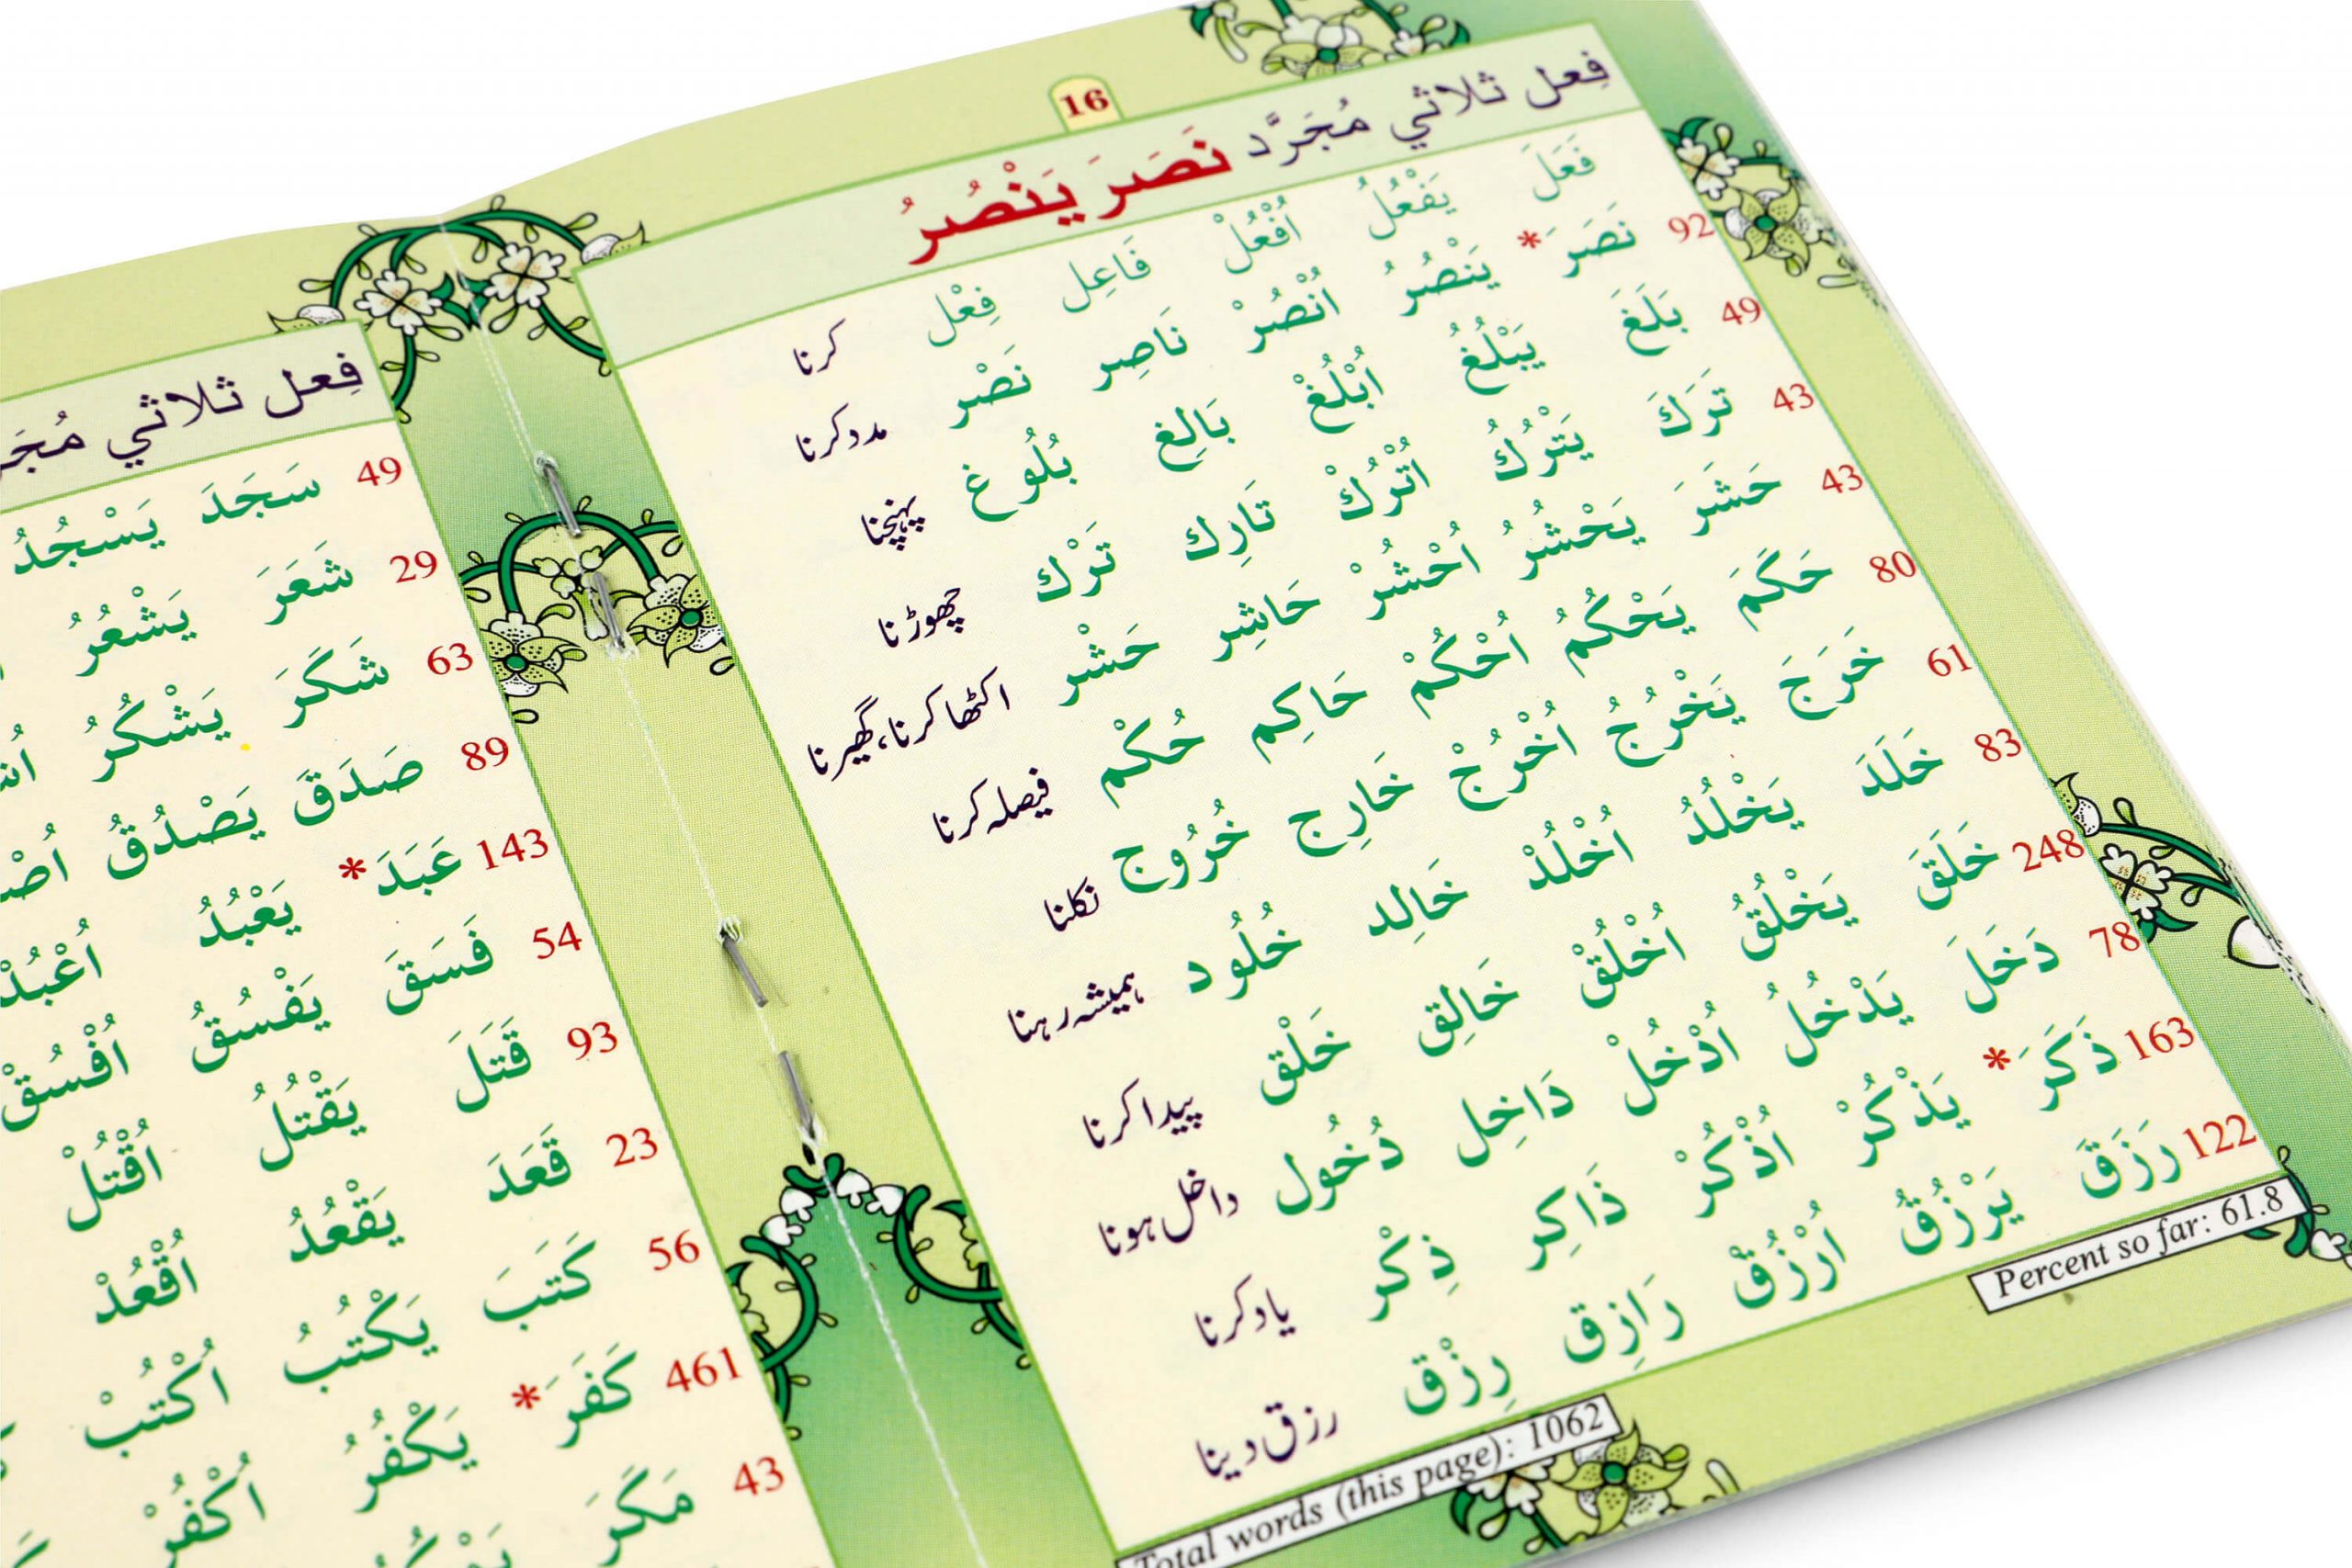 16
فِعل ثلاثي مُجَرَّد نَصَرَ يَنْصُرُ
فَعَلَ يَفْعُلُ اُفْعُلْ فَاعِل فِعْل کرنا
92 نَصَرَ * يَنْصُرُ اُنْصُرْ نَاصِر نَصْر مدد کرنا
49 بَلَغَ يَبْلُغُ اُبْلُغْ بَالِغ بُلُوغ پہنچنا
43 تَرَكَ يَتْرُكُ اُتْرُكْ تَارِك تَرْك چھوڑنا
43 حَشَرَ يَحْشُرُ اُحْشُرْ حَاشِر حَشْر اکٹھا کرنا، گھیرنا
80 حَكَمَ يَحْكُمُ اُحْكُمْ حَاكِم حُكْم فیصلہ کرنا
61 خَرَجَ يَخْرُجُ اُخْرُجْ خَارِج خُرُوج نکلنا
83 خَلَدَ يَخْلُدُ اُخْلُدْ خَالِد خُلُود ہمیشہ رہنا
248 خَلَقَ يَخْلُقُ اُخْلُقْ خَالِق خَلْق پیدا کرنا
78 دَخَلَ يَدْخُلُ اُدْخُلْ دَاخِل دُخُول داخل ہونا
163 ذَكَرَ * يَذْكُرُ اُذْكُرْ ذَاكِر ذِكْر یاد کرنا
122 رَزَقَ يَرْزُقُ اُرْزُقْ رَازِق رِزْق رزق دینا
Percent so far: 61.8
Total words (this page): 1062
فِعل ثلاثي
49 سَجَدَ يَسْجُدُ
29 شَعَرَ يَشْعُرُ
63 شَكَرَ يَشْكُرُ
89 صَدَقَ يَصْدُقُ
143 عَبَدَ * يَعْبُدُ اُعْبُدْ
54 فَسَقَ يَفْسُقُ اُفْسُقْ
93 قَتَلَ يَقْتُلُ اُقْتُلْ
23 قَعَدَ يَقْعُدُ اُقْعُدْ
56 كَتَبَ يَكْتُبُ اُكْتُبْ
461 كَفَرَ * يَكْفُرُ اُكْفُرْ
43 مَكَرَ